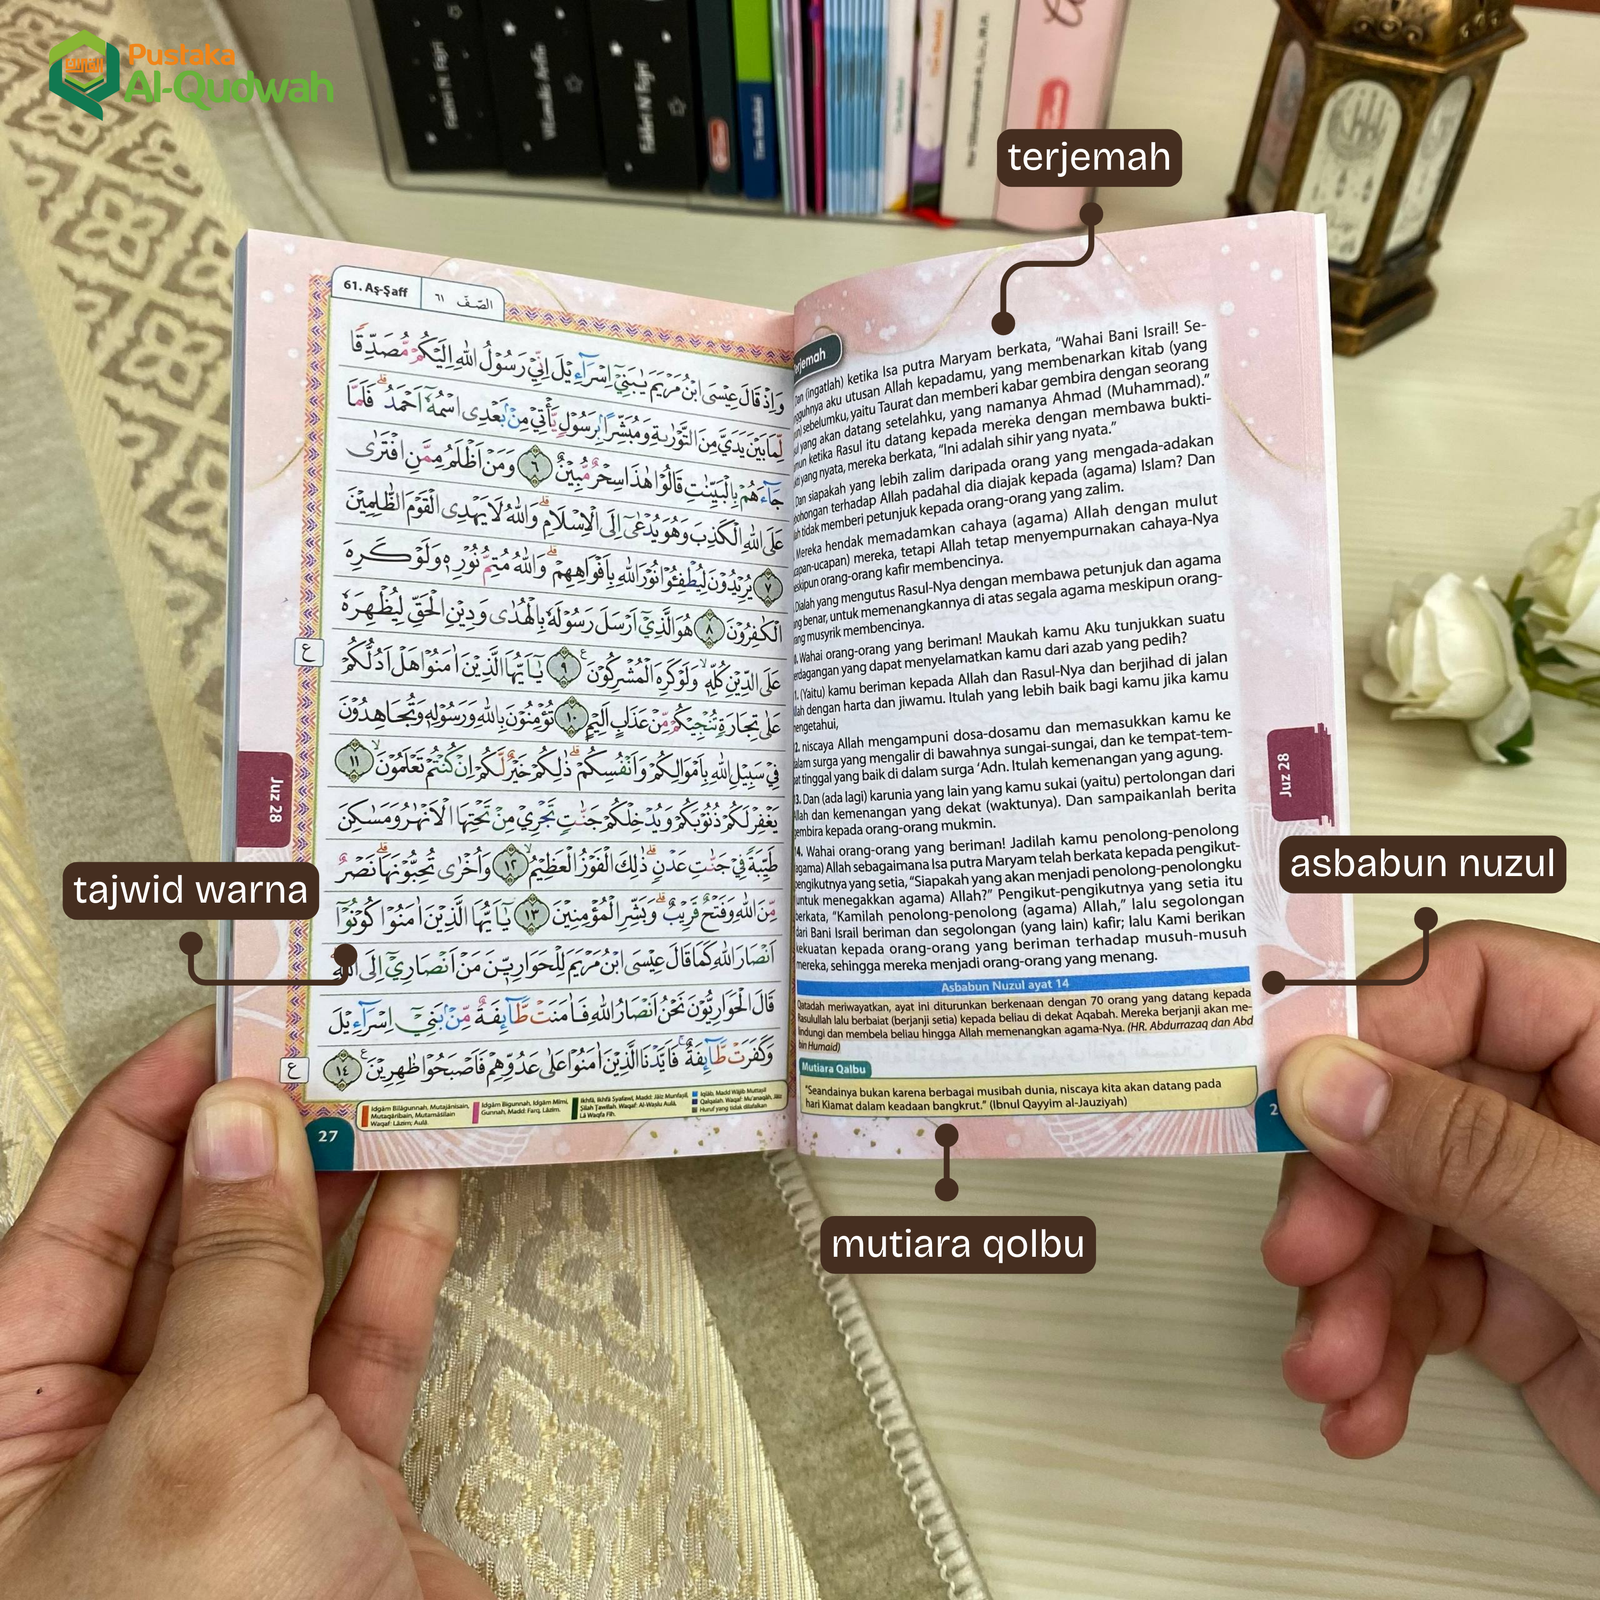 Pustaka
Al-Qudwah
terjemah
tajwid warna
asbabun nuzul
mutiara qolbu
61. Aṣ-Ṣaff
٦١ الصّفّ
وَاِذْ قَالَ عِيْسَى ابْنُ مَرْيَمَ يٰبَنِيْٓ اِسْرَاۤءِيْلَ اِنِّيْ رَسُوْلُ اللّٰهِ اِلَيْكُمْ مُّصَدِّقًا
لِّمَا بَيْنَ يَدَيَّ مِنَ التَّوْرٰىةِ وَمُبَشِّرًاۢ بِرَسُوْلٍ يَّأْتِيْ مِنْۢ بَعْدِى اسْمُهٗٓ اَحْمَدُۗ فَلَمَّا
جَاۤءَهُمْ بِالْبَيِّنٰتِ قَالُوْا هٰذَا سِحْرٌ مُّبِيْنٌ ٦ وَمَنْ اَظْلَمُ مِمَّنِ افْتَرٰى
عَلَى اللّٰهِ الْكَذِبَ وَهُوَ يُدْعٰىٓ اِلَى الْاِسْلَامِۗ وَاللّٰهُ لَا يَهْدِى الْقَوْمَ الظّٰلِمِيْنَ
٧ يُرِيْدُوْنَ لِيُطْفِـُٔوْا نُوْرَ اللّٰهِ بِاَفْوَاهِهِمْۗ وَاللّٰهُ مُتِمُّ نُوْرِهٖ وَلَوْ كَرِهَ
الْكٰفِرُوْنَ ٨ هُوَ الَّذِيْٓ اَرْسَلَ رَسُوْلَهٗ بِالْهُدٰى وَدِيْنِ الْحَقِّ لِيُظْهِرَهٗ
عَلَى الدِّيْنِ كُلِّهٖۙ وَلَوْ كَرِهَ الْمُشْرِكُوْنَ ࣖ ٩ يٰٓاَيُّهَا الَّذِيْنَ اٰمَنُوْا هَلْ اَدُلُّكُمْ
عَلٰى تِجَارَةٍ تُنْجِيْكُمْ مِّنْ عَذَابٍ اَلِيْمٍ ١٠ تُؤْمِنُوْنَ بِاللّٰهِ وَرَسُوْلِهٖ وَتُجَاهِدُوْنَ
فِيْ سَبِيْلِ اللّٰهِ بِاَمْوَالِكُمْ وَاَنْفُسِكُمْۗ ذٰلِكُمْ خَيْرٌ لَّكُمْ اِنْ كُنْتُمْ تَعْلَمُوْنَۙ ١١
يَغْفِرْ لَكُمْ ذُنُوْبَكُمْ وَيُدْخِلْكُمْ جَنّٰتٍ تَجْرِيْ مِنْ تَحْتِهَا الْاَنْهٰرُ وَمَسٰكِنَ
طَيِّبَةً فِيْ جَنّٰتِ عَدْنٍۗ ذٰلِكَ الْفَوْزُ الْعَظِيْمُۙ ١٢ وَاُخْرٰى تُحِبُّوْنَهَاۗ نَصْرٌ
مِّنَ اللّٰهِ وَفَتْحٌ قَرِيْبٌۗ وَبَشِّرِ الْمُؤْمِنِيْنَ ١٣ يٰٓاَيُّهَا الَّذِيْنَ اٰمَنُوْا كُوْنُوْٓا
اَنْصَارَ اللّٰهِ كَمَا قَالَ عِيْسَى ابْنُ مَرْيَمَ لِلْحَوَارِيّٖنَ مَنْ اَنْصَارِيْٓ اِلَى اللّٰهِۗ
قَالَ الْحَوَارِيُّوْنَ نَحْنُ اَنْصَارُ اللّٰهِ فَاٰمَنَتْ طَّاۤىِٕفَةٌ مِّنْۢ بَنِيْٓ اِسْرَاۤءِيْلَ
وَكَفَرَتْ طَّاۤىِٕفَةٌۚ فَاَيَّدْنَا الَّذِيْنَ اٰمَنُوْا عَلٰى عَدُوِّهِمْ فَاَصْبَحُوْا ظٰهِرِيْنَ ࣖ ١٤
ع
ع
Juz 28
Idgām Bilāgunnah, Mutajānisain,
Mutaqāribain, Mutamāṡilain
Waqaf: Lāzim; Aulā.
Idgām Bigunnah, Idgām Mīmī,
Gunnah, Madd: Farq, Lāzim.
Ikhfā, Ikhfā Syafawī, Madd: Jāiz Munfaṣil,
Ṣilah Ṭawīlah. Waqaf: Al-Waṣlu Aulā,
Lā Waqfa Fīh.
Iqlāb, Madd Wājib Muttaṣil
Qalqalah. Waqaf: Mu'ānaqah, Jāiz
Huruf yang tidak dilafalkan
27
(ingatlah) ketika Isa putra Maryam berkata, “Wahai Bani Israil! Se-
aku utusan Allah kepadamu, yang membenarkan kitab (yang
sebelumku, yaitu Taurat dan memberi kabar gembira dengan seorang
yang akan datang setelahku, yang namanya Ahmad (Muhammad).”
ketika Rasul itu datang kepada mereka dengan membawa bukti-
yang nyata, mereka berkata, “Ini adalah sihir yang nyata.”
Dan siapakah yang lebih zalim daripada orang yang mengada-adakan
terhadap Allah padahal dia diajak kepada (agama) Islam? Dan
tidak memberi petunjuk kepada orang-orang yang zalim.
Mereka hendak memadamkan cahaya (agama) Allah dengan mulut
mereka, tetapi Allah tetap menyempurnakan cahaya-Nya
orang-orang kafir membencinya.
yang mengutus Rasul-Nya dengan membawa petunjuk dan agama
benar, untuk memenangkannya di atas segala agama meskipun orang-
musyrik membencinya.
Wahai orang-orang yang beriman! Maukah kamu Aku tunjukkan suatu
yang dapat menyelamatkan kamu dari azab yang pedih?
(Yaitu) kamu beriman kepada Allah dan Rasul-Nya dan berjihad di jalan
dengan harta dan jiwamu. Itulah yang lebih baik bagi kamu jika kamu
niscaya Allah mengampuni dosa-dosamu dan memasukkan kamu ke
surga yang mengalir di bawahnya sungai-sungai, dan ke tempat-tem-
tinggal yang baik di dalam surga ‘Adn. Itulah kemenangan yang agung.
Dan (ada lagi) karunia yang lain yang kamu sukai (yaitu) pertolongan dari
dan kemenangan yang dekat (waktunya). Dan sampaikanlah berita
kepada orang-orang mukmin.
Wahai orang-orang yang beriman! Jadilah kamu penolong-penolong
(agama) Allah sebagaimana Isa putra Maryam telah berkata kepada pengikut-
pengikutnya yang setia, “Siapakah yang akan menjadi penolong-penolongku
(untuk menegakkan agama) Allah?” Pengikut-pengikutnya yang setia itu
berkata, “Kamilah penolong-penolong (agama) Allah,” lalu segolongan
dari Bani Israil beriman dan segolongan (yang lain) kafir; lalu Kami berikan
kekuatan kepada orang-orang yang beriman terhadap musuh-musuh
mereka, sehingga mereka menjadi orang-orang yang menang.
Juz 28
Asbabun Nuzul ayat 14
Qatadah meriwayatkan, ayat ini diturunkan berkenaan dengan 70 orang yang datang kepada
Rasulullah lalu berbaiat (berjanji setia) kepada beliau di dekat Aqabah. Mereka berjanji akan me-
lindungi dan membela beliau hingga Allah memenangkan agama-Nya. (HR. Abdurrazaq dan Abd
bin Humaid)
Mutiara Qalbu
“Seandainya bukan karena berbagai musibah dunia, niscaya kita akan datang pada
hari Kiamat dalam keadaan bangkrut.” (Ibnul Qayyim al-Jauziyah)